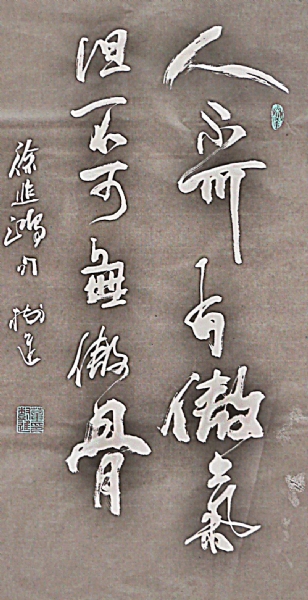 人不可有傲氣
但不可無傲骨
徐悲鴻句